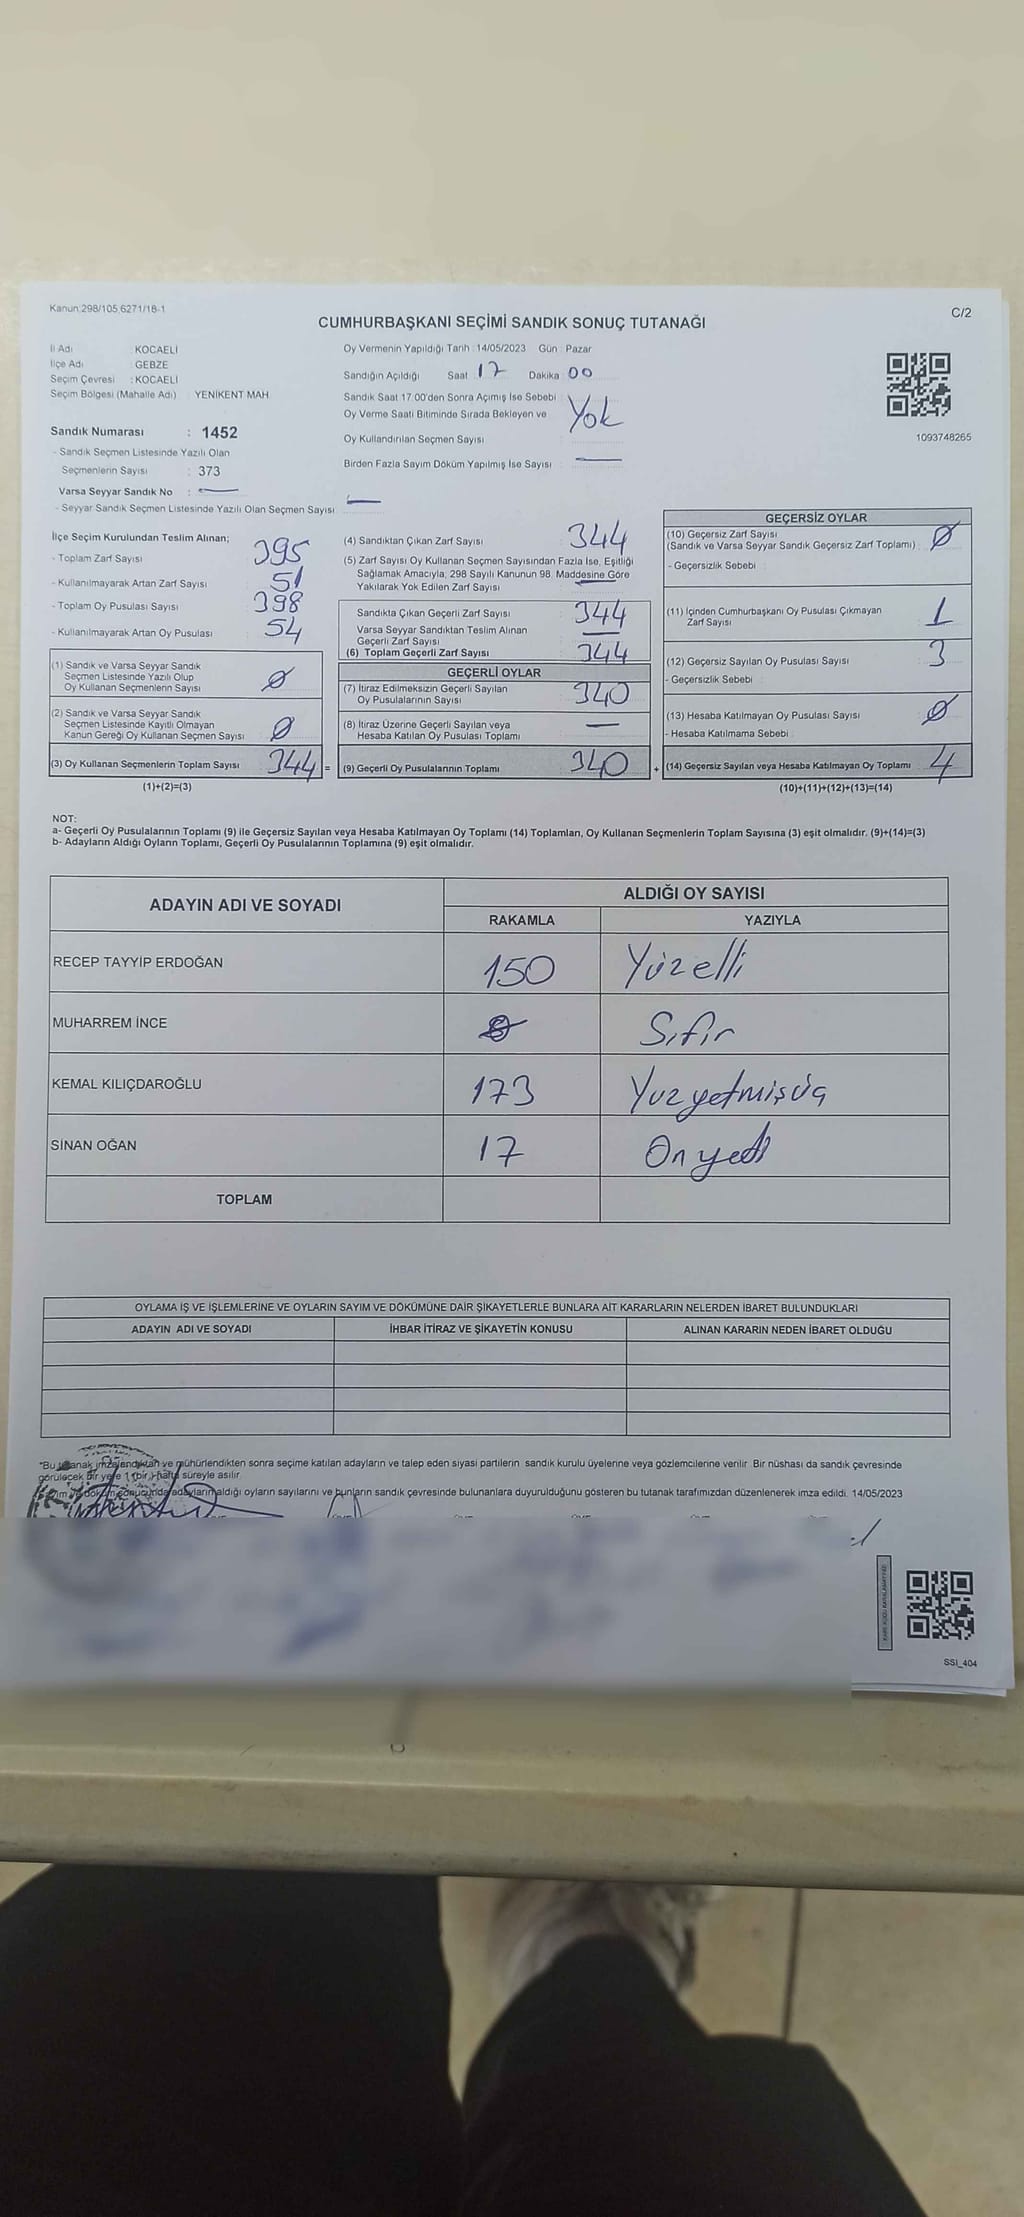 Kanun:298/105,6271/18-1
C/2
CUMHURBAŞKANI SEÇİMİ SANDIK SONUÇ TUTANAĞI
İl Adı : KOCAELİ
İlçe Adı : GEBZE
Seçim Çevresi : KOCAELİ
Seçim Bölgesi (Mahalle Adı) : YENİKENT MAH
Sandık Numarası : 1452
- Sandık Seçmen Listesinde Yazılı Olan
Seçmenlerin Sayısı : 373
Varsa Seyyar Sandık No : —
- Seyyar Sandık Seçmen Listesinde Yazılı Olan Seçmen Sayısı : —
Oy Vermenin Yapıldığı Tarih : 14/05/2023 Gün : Pazar
Sandığın Açıldığı Saat : 17 Dakika : 00
Sandık Saat 17.00'den Sonra Açımış İse Sebebi :
Oy Verme Saati Bitiminde Sırada Bekleyen ve Yok
Oy Kullandırılan Seçmen Sayısı :
Birden Fazla Sayım Döküm Yapılmış İse Sayısı : —
1093748265
İlçe Seçim Kurulundan Teslim Alınan;
- Toplam Zarf Sayısı : 395
- Kullanılmayarak Artan Zarf Sayısı : 51
- Toplam Oy Pusulası Sayısı : 398
- Kullanılmayarak Artan Oy Pusulası : 54
(1) Sandık ve Varsa Seyyar Sandık
Seçmen Listesinde Yazılı Olup
Oy Kullanan Seçmenlerin Sayısı : Ø
(2) Sandık ve Varsa Seyyar Sandık
Seçmen Listesinde Kayıtlı Olmayan
Kanun Gereği Oy Kullanan Seçmen Sayısı : Ø
(3) Oy Kullanan Seçmenlerin Toplam Sayısı : 344 =
(1)+(2)=(3)
(4) Sandıktan Çıkan Zarf Sayısı : 344
(5) Zarf Sayısı Oy Kullanan Seçmen Sayısından Fazla İse, Eşitliği
Sağlamak Amacıyla, 298 Sayılı Kanunun 98. Maddesine Göre
Yakılarak Yok Edilen Zarf Sayısı : —
Sandıkta Çıkan Geçerli Zarf Sayısı : 344
Varsa Seyyar Sandıktan Teslim Alınan
Geçerli Zarf Sayısı : —
(6) Toplam Geçerli Zarf Sayısı : 344
GEÇERLİ OYLAR
(7) İtiraz Edilmeksizin Geçerli Sayılan
Oy Pusulalarının Sayısı : 340
(8) İtiraz Üzerine Geçerli Sayılan veya
Hesaba Katılan Oy Pusulası Toplamı : —
(9) Geçerli Oy Pusulalarının Toplamı : 340 +
GEÇERSİZ OYLAR
(10) Geçersiz Zarf Sayısı
(Sandık ve Varsa Seyyar Sandık Geçersiz Zarf Toplamı) : Ø
- Geçersizlik Sebebi :
(11) İçinden Cumhurbaşkanı Oy Pusulası Çıkmayan
Zarf Sayısı : 1
(12) Geçersiz Sayılan Oy Pusulası Sayısı : 3
- Geçersizlik Sebebi :
(13) Hesaba Katılmayan Oy Pusulası Sayısı : Ø
- Hesaba Katılmama Sebebi :
(14) Geçersiz Sayılan veya Hesaba Katılmayan Oy Toplamı : 4
(10)+(11)+(12)+(13)=(14)
NOT:
a- Geçerli Oy Pusulalarının Toplamı (9) ile Geçersiz Sayılan veya Hesaba Katılmayan Oy Toplamı (14) Toplamları, Oy Kullanan Seçmenlerin Toplam Sayısına (3) eşit olmalıdır. (9)+(14)=(3)
b- Adayların Aldığı Oyların Toplamı, Geçerli Oy Pusulalarının Toplamına (9) eşit olmalıdır.
ADAYIN ADI VE SOYADI ALDIĞI OY SAYISI
RAKAMLA YAZIYLA
RECEP TAYYİP ERDOĞAN 150 Yüzelli
MUHARREM İNCE Sıfır
KEMAL KILIÇDAROĞLU 173 Yüzyetmişüç
SİNAN OĞAN 17 On yedi
TOPLAM
OYLAMA İŞ VE İŞLEMLERİNE VE OYLARIN SAYIM VE DÖKÜMÜNE DAİR ŞİKAYETLERLE BUNLARA AİT KARARLARIN NELERDEN İBARET BULUNDUKLARI
ADAYIN ADI VE SOYADI İHBAR İTİRAZ VE ŞİKAYETİN KONUSU ALINAN KARARIN NEDEN İBARET OLDUĞU
*Bu tutanak imzalandıktan ve mühürlendikten sonra seçime katılan adayların ve talep eden siyasi partilerin sandık kurulu üyelerine veya gözlemcilerine verilir. Bir nüshası da sandık çevresinde
görülecek bir yere 1 (bir) hafta süreyle asılır.
adayların aldığı oyların sayılarını ve bunların sandık çevresinde bulunanlara duyurulduğunu gösteren bu tutanak tarafımızdan düzenlenerek imza edildi. 14/05/2023
SSI_404